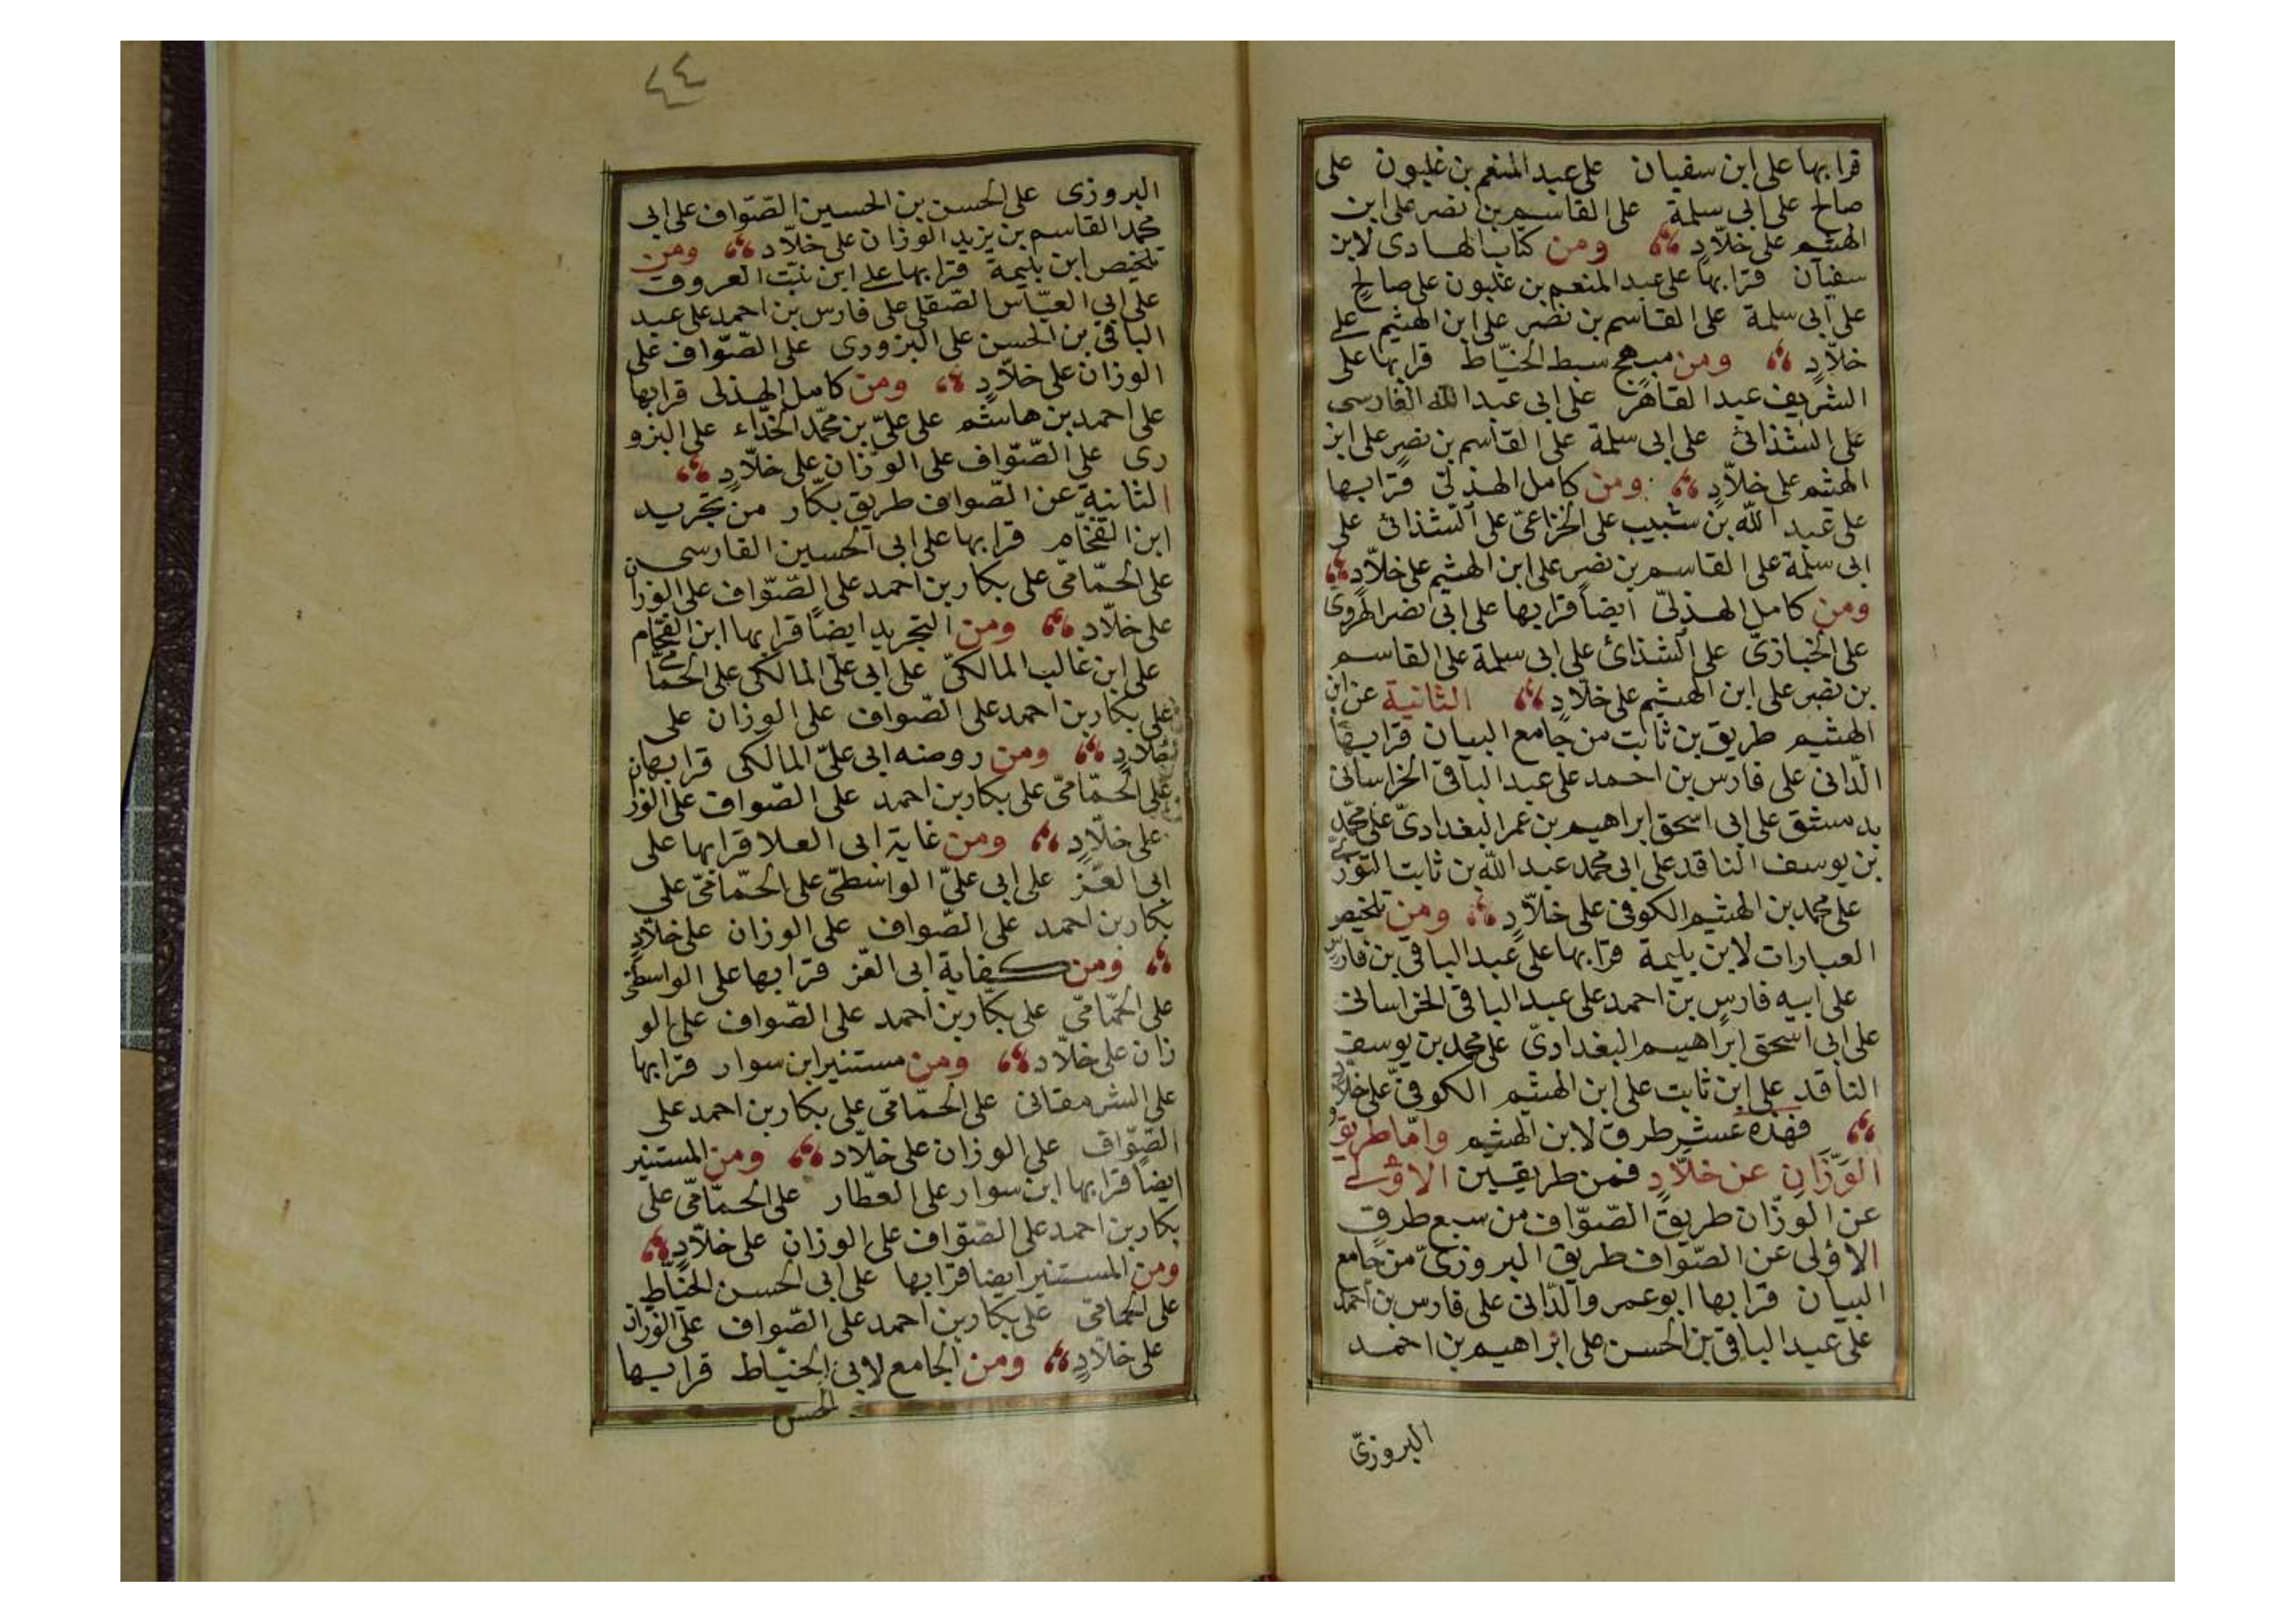 قرا بها على ابن سفيان على عبد المنعم بن غلبون على
صالح على ابى سلمة على القاسم بن نصر على ابن
الهيثم على خلّادٍ ومن كتاب الهادى لابن
سفيان قرا بها على عبد المنعم بن غلبون على صالحٍ
على ابى سلمة على القاسم بن نصر على ابن الهيثم على
خلّادٍ ومن مبهج سبط الخيّاط قرا بها على
الشريف عبد القاهر على ابى عبد الله الفارسى
على الشذائى على ابى سلمة على القاسم بن نصرٍ على ابن
الهيثم على خلّادٍ ومن كامل الهذلىّ قرا بها
على عبد الله بن شبيب على الخزاعىّ على الشذائى على
ابى سلمة على القاسم بن نصرٍ على ابن الهيثم على خلّادٍ
ومن كامل الهذلىّ ايضاً قرا بها على ابى نصر الهروى
على الخبازىّ على الشذائ على ابى سلمة على القاسم
بن نصر على ابن الهيثم على خلّادٍ الثانية عن ابن
الهيثم طريق بن ثابت من جامع البيان قرا بها
الدّانى على فارس بن احمد على عبد الباقى الخراسانى
بدمشق على ابى اسحق ابراهيم بن عمر البغدادىّ على محمّد
بن يوسف الناقد على ابى محمد عبد الله بن ثابت التوزى
على محمد بن الهيثم الكوفى على خلّادٍ ومن تلخيص
العبارات لابن بليمة قرا بها على عبد الباقى بن فارس
على ابيه فارس بن احمد على عبد الباقى الخراسانى
على ابى اسحق ابراهيم البغدادىّ على محمد بن يوسف
الناقد على ابن ثابت على ابن الهيثم الكوفىّ على خلّادٍ
فهذه عشر طرق لابن الهيثم وامّا طريق
الوَزّانِ عن خلّادٍ فمن طريقين الاوْلى
عن الوزّان طريق الصّوّاف من سبع طرقٍ
الاوْلى عن الصّوّاف طريق البروزىّ من جامع
البيان قرا بها ابو عمرو الدّانى على فارس بن احمد
على عبد الباقى بن الحسن على ابراهيم بن احمد
البروزىّ
٤٤
البروزى على الحسن بن الحسين الصّوّاف على ابى
محمد القاسم بن يزيد الوزان على خلّاد ومن
تلخيص ابن بليمة قرا بها على ابن نبت العروق
على ابى العبّاس الصّقلى على فارس بن احمد على عبد
الباقى بن الحسن على البزورى على الصّوّاف على
الوزان على خلّادٍ ومن كامل الهذلى قرا بها
على احمد بن هاشم على علىّ بن محمّد الحذّاء على البزو
رى على الصّوّاف على الوزّان على خلّادٍ
الثانية عن الصّواف طريق بكّار من تجريد
ابن الفحّام قرا بها على ابى الحسين الفارسى
على الحمّامىّ على بكار بن احمد على الصّوّاف على الوزان
على خلّاد ومن التجريد ايضاً قرا بها ابن الفحّام
على ابن غالب المالكىّ على ابى علىّ المالكى على الحمّامى
على بكار بن احمد على الصّواف على الوزان على
خلادٍ ومن روضه ابى علىّ المالكى قرا بها
على الحمّامىّ على بكار بن احمد على الصّواف على الوزان
على خلّادٍ ومن غاية ابى العلا قرا بها على
ابى العّز على ابى علىّ الواسطىّ على الحمّامىّ على
بكار بن احمد على الصّواف على الوزان على خلّادٍ
ومن كفاية ابى العّز قرا بها على الواسطىّ
على الحمّامىّ على بكّار بن احمد على الصّواف على الو
زان على خلّاد ومن مستنير ابن سوار قرا بها
على الشرمقانى على الحمّامىّ على بكار بن احمد على
الصّوّاف على الوزان على خلّاد ومن المستنير
ايضاً قرا بها ابن سوار على العطّار على الحمّامىّ على
بكار بن احمد على الصّوّاف على الوزان على خلّادٍ
ومن المستنير ايضا قرا بها على ابى الحسن الخيّاط
على الحمّامى على بكار بن احمد على الصّواف على الوزان
على خلّادٍ ومن الجامع لابى الخيّاط قرا بها
الحسن